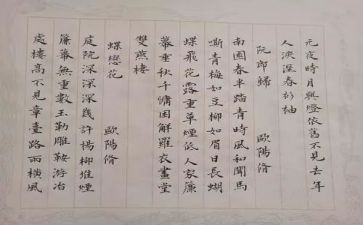 元夜時月與燈依舊不見去年
人淚溼春衫袖
阮郎歸 歐陽脩
南園春半踏青時風和聞馬
嘶青梅如豆柳如眉日長蝴
蝶飛花露重草煙低人家簾
幕垂秋千慵困解羅衣畫堂
雙燕棲
蝶戀花 歐陽脩
庭院深深深幾許楊柳堆煙
簾幕無重數玉勒雕鞍游冶
處樓高不見章臺路雨橫風